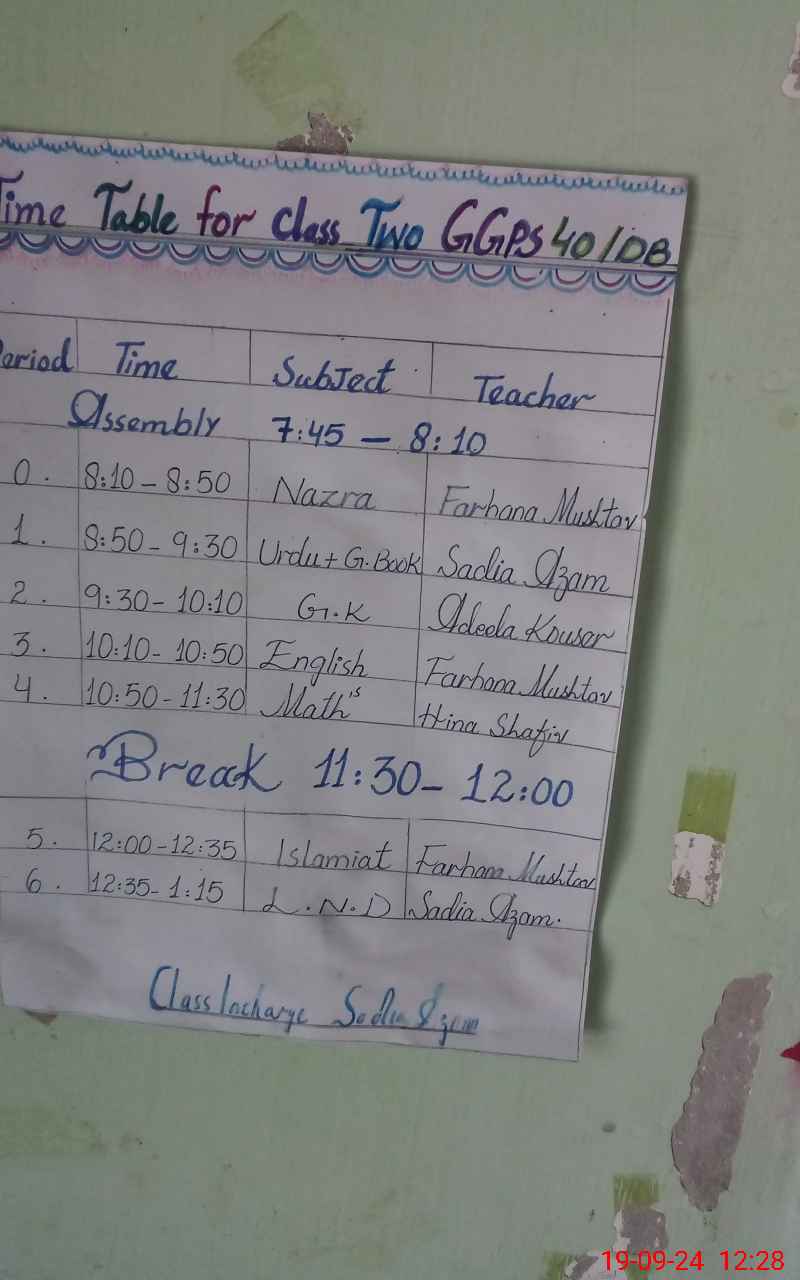 Time Table for Class Two GGPS 40/DB
Period Time Subject Teacher
Assembly 7:45 – 8:10
0. 8:10 – 8:50 Nazra Farhana Mushtav
1. 8:50 - 9:30 Urdu + G.Book Sadia Azam
2. 9:30 - 10:10 G.K Adeela Kousar
3. 10:10 - 10:50 English Farhana Mushtav
4. 10:50 - 11:30 Math's Hina Shafiv
Break 11:30 - 12:00
5. 12:00 - 12:35 Islamiat Farhana Mushtav
6. 12:35 - 1:15 L.N.D Sadia Azam.
Class Incharge Sadia Azam
19-09-24 12:28